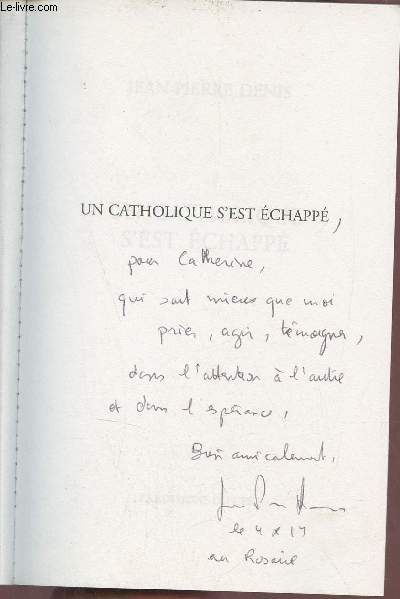 Le-livre.com
JEAN-PIERRE DENIS
UN CATHOLIQUE S'EST ÉCHAPPÉ,
S'EST ÉCHAPPÉ
pour Catherine,
qui sait mieux que moi
prier, agir, témoigner,
dans l'attention à l'autre
et dans l'espérance,
Bien amicalement,
le 4 x 19
au Rosaire